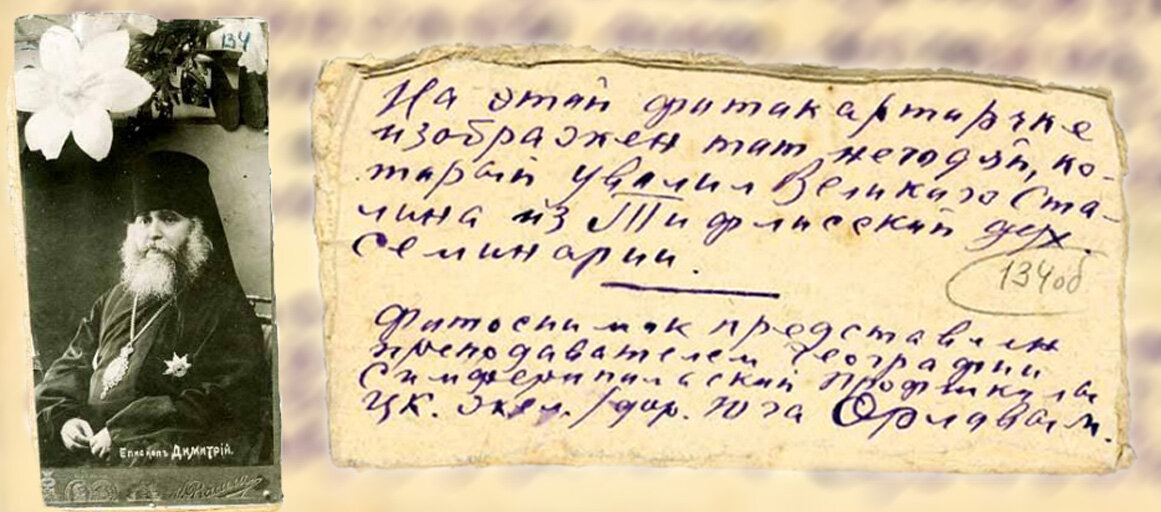 134
Епископъ Димитрій.
На этой фотокарточке
изображен тот негодяй, ко-
торый уволил Великого Ста-
лина из Тифлисской дух.
семинарии.
134об
Фотоснимок представлен
преподавателем географии
Симферопольской профшколы
ЦК. жел./дор. Юга Орловым.